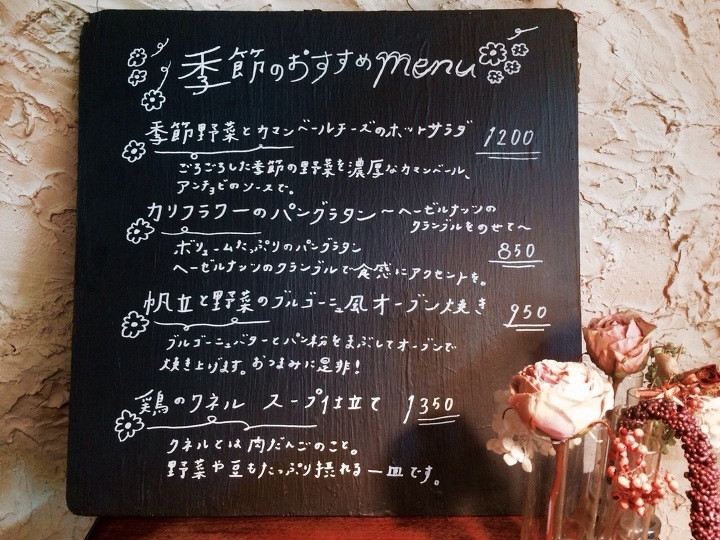 季節のおすすめmenu
季節野菜とカマンベールチーズのホットサラダ 1200
ごろごろした季節の野菜を濃厚なカマンベール、
アンチョビのソースで。
カリフラワーのパングラタン〜ヘーゼルナッツの
クランブルをのせて〜
ボリュームたっぷりのパングラタン 850
ヘーゼルナッツのクランブルで食感にアクセントを。
帆立と野菜のブルゴーニュ風オーブン焼き 950
ブルゴーニュバターとパン粉をまぶしてオーブンで
焼き上げます。おつまみに是非!
鶏のクネル スープ仕立て 1350
クネルとは肉だんごのこと。
野菜や豆もたっぷり摂れる一皿です。